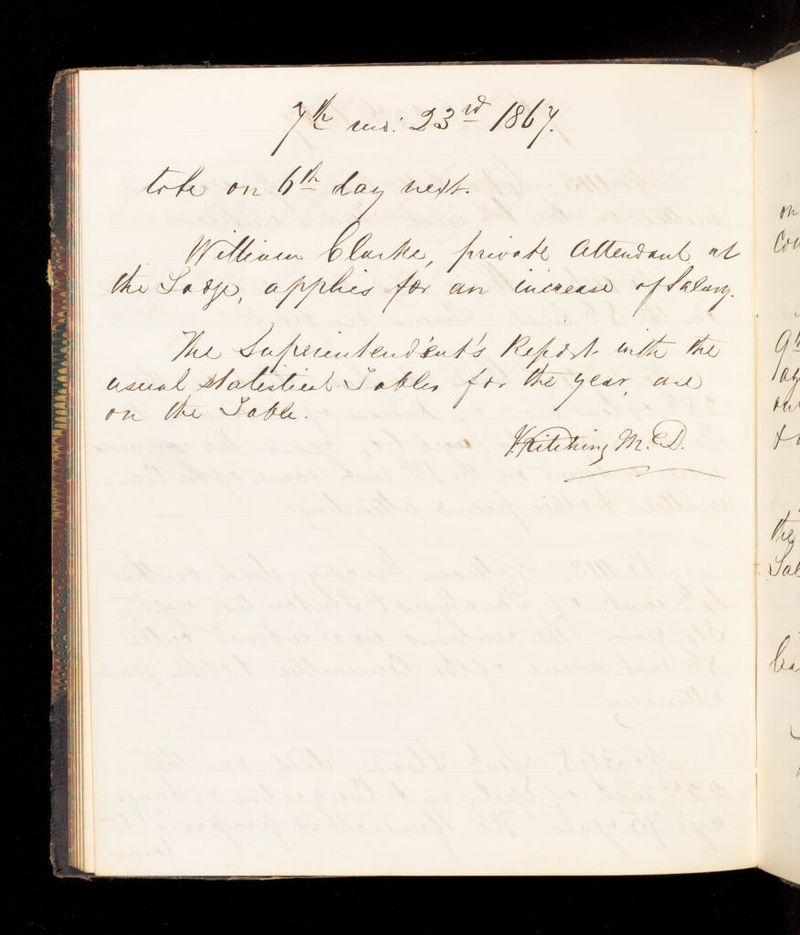 7th mo: 23rd 1867.
to be on 6th day next.
William Clarke, private Attendant at
the Lodge, applies for an increase of Salary.
The Superintendent's Report with the
usual Statistical Tables for the year, are
on the Table.
J Kitching M.D.
on
the